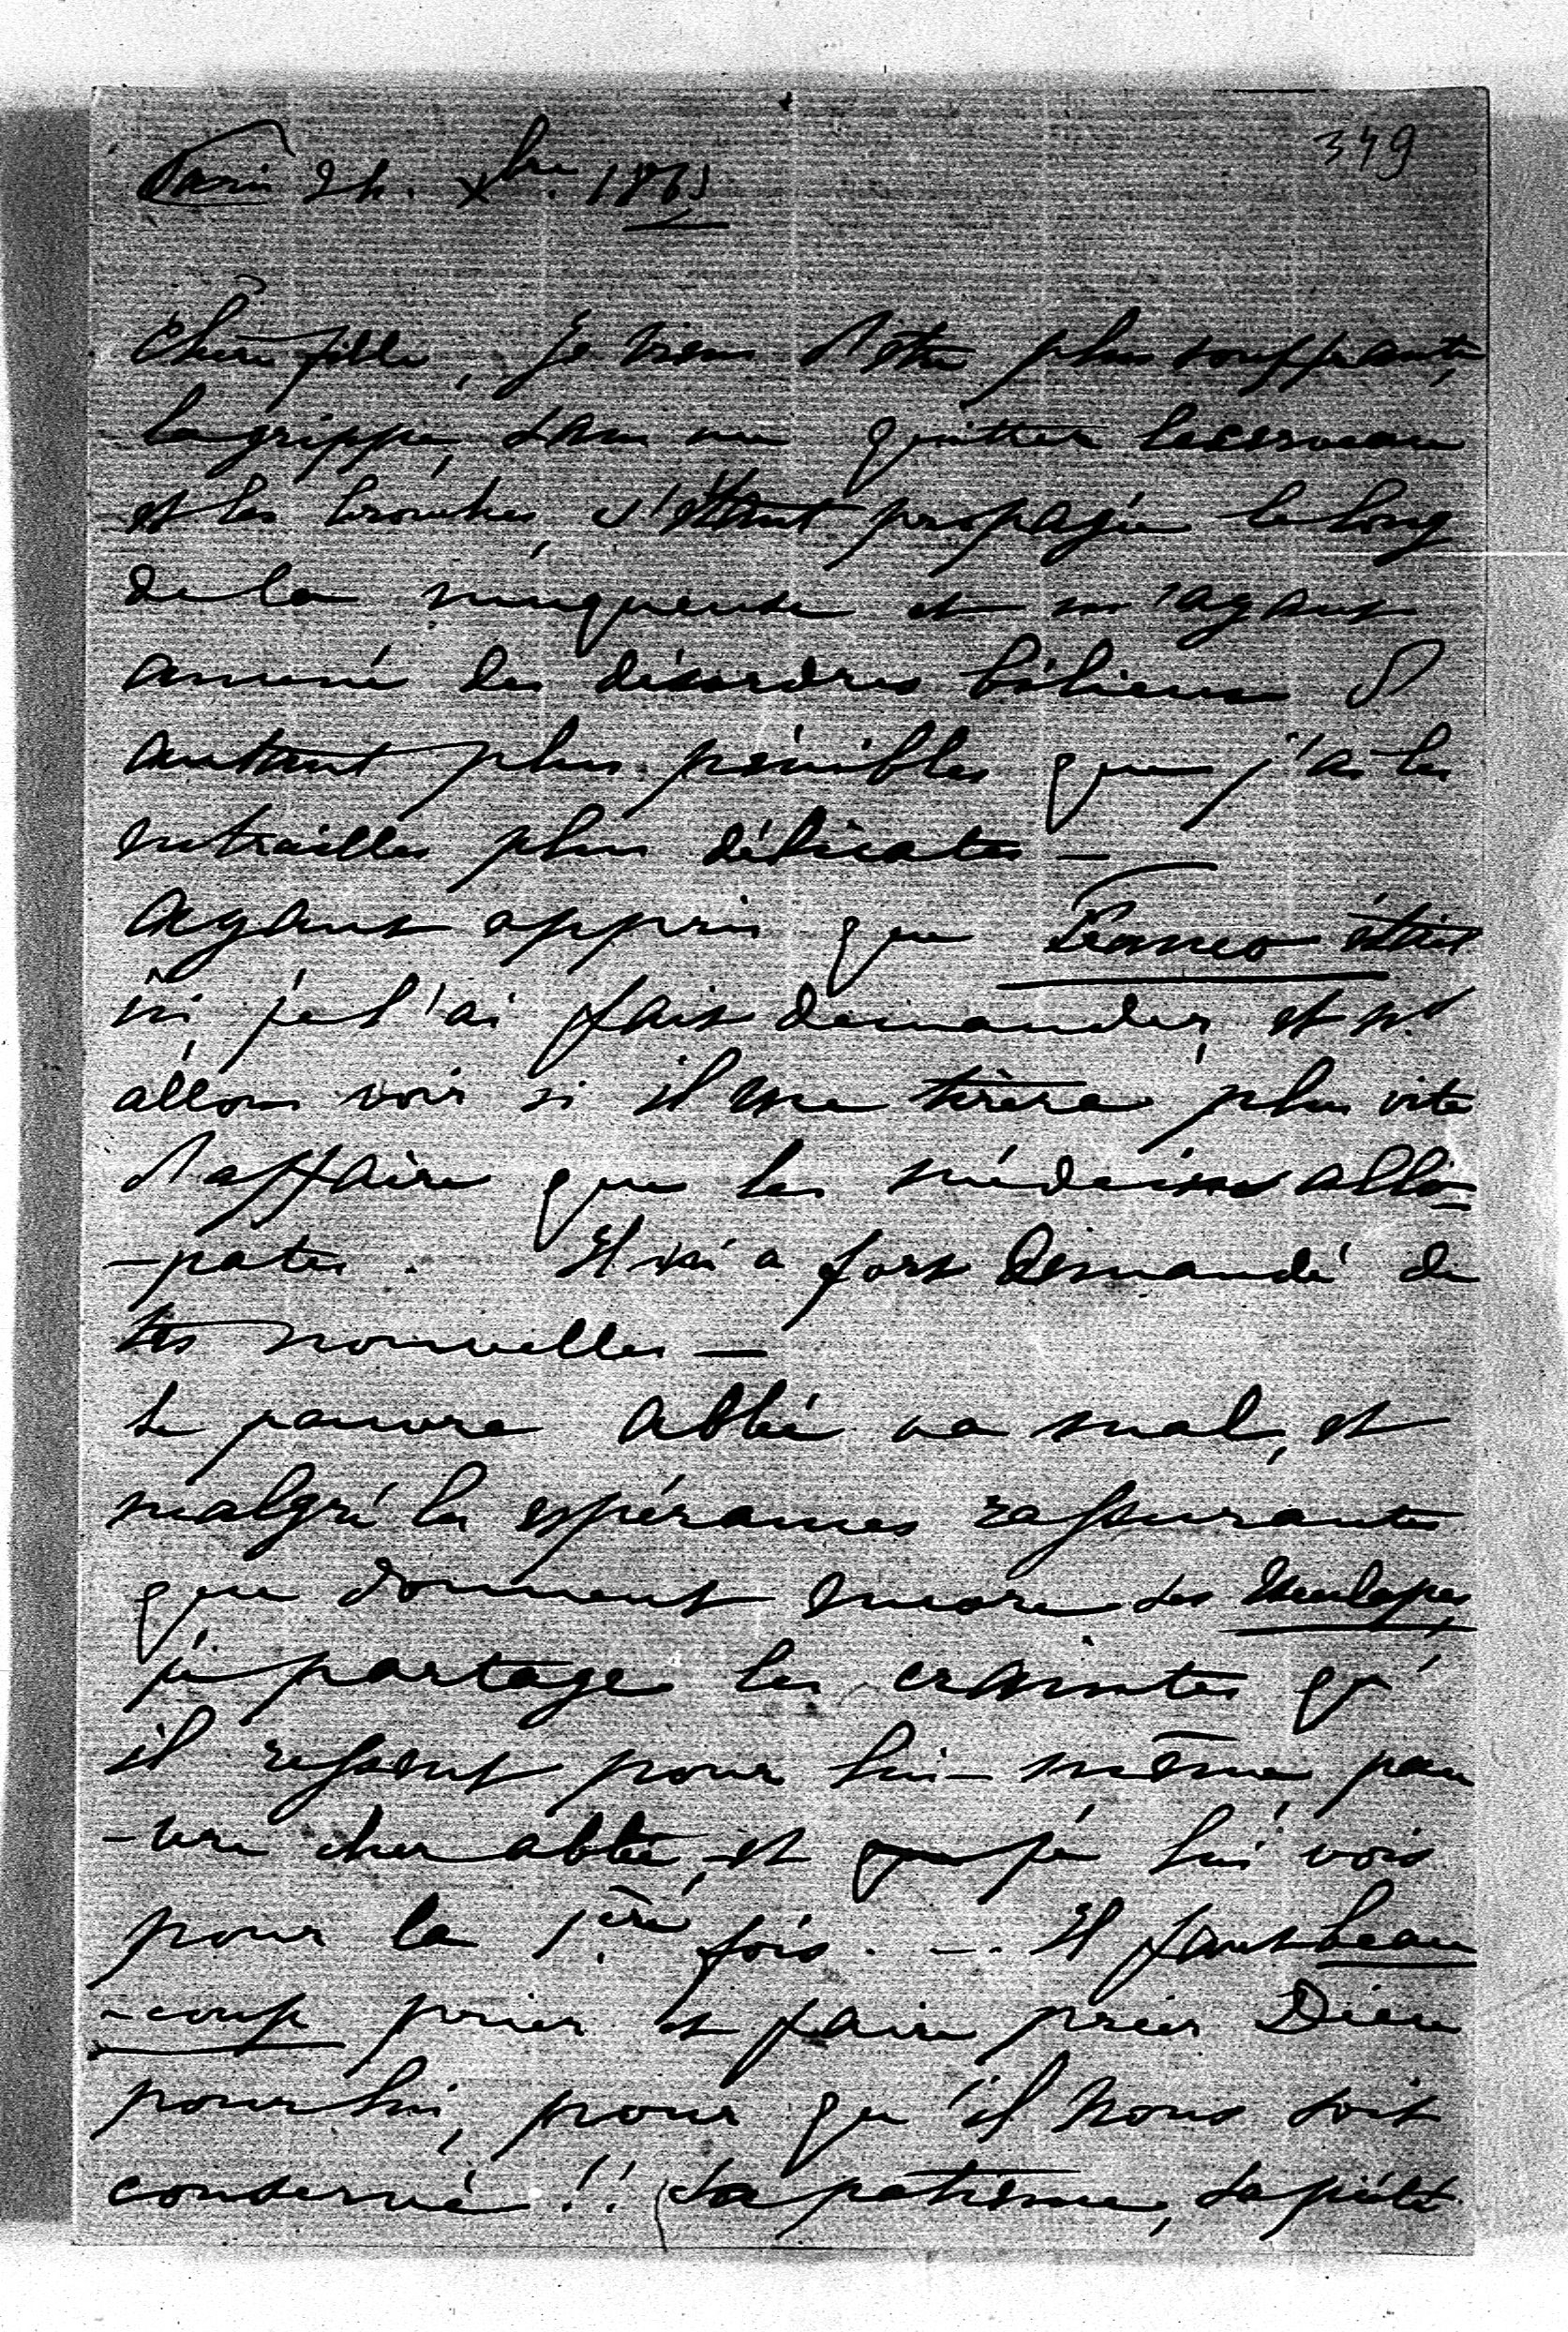 349
Paris 24. Xbre. 1861
Chère fille, je viens d'être plus souffrante,
la grippe, sans me quitter le cerveau
et les bronches, s'étant propagée le long
de la muqueuse et m'ayant
amené des désordres bilieux d'
autant plus pénibles que j'ai les
entrailles plus délicates —
ayant appris que Franco était
ici, je l'ai fait demander, et ns
allons voir si il me tirera plus vite
d'affaire que les médecins allo-
-pates. Il m'a fort demandé de
tes nouvelles —
Le pauvre abbé va mal, et
malgré les espérances rassurantes
que donnent encore ses Esculapes,
je partage les craintes qu'
il ressent pour lui-même, pau
-vre cher abbé, et que je lui vois
pour la 1ère fois. ... Il faut beau
-coup prier et faire prier Dieu
pour lui, pour qu'il nous soit
conservé !! Sa patience, sa piété